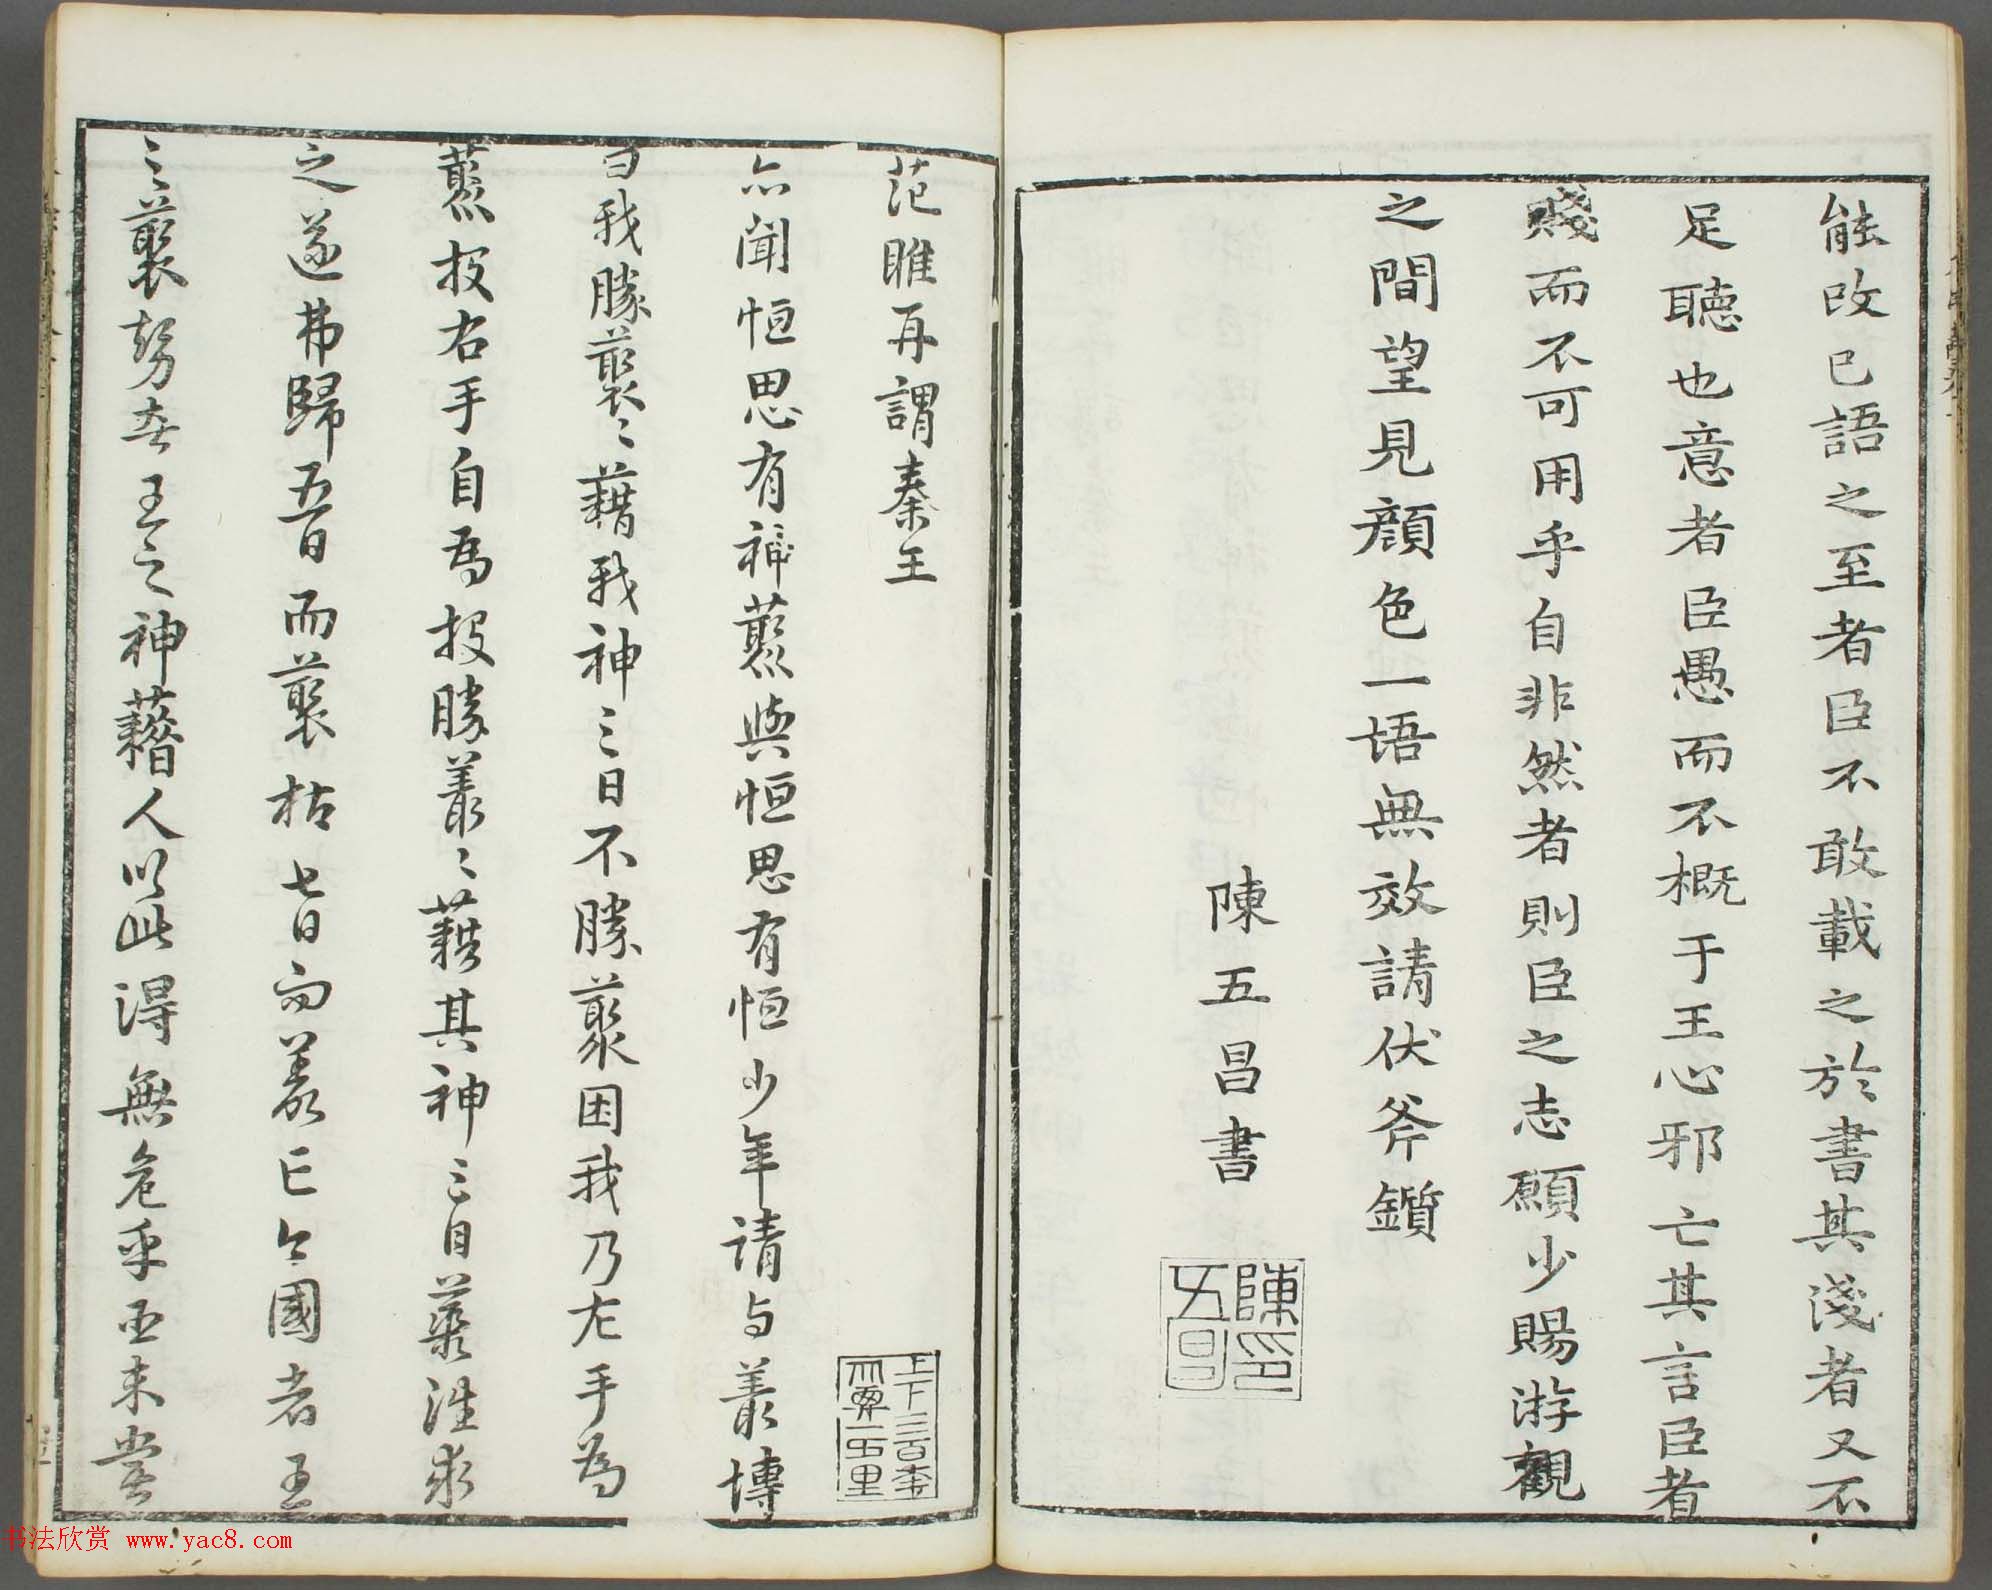 能改已語之至者臣不敢載之於書其淺者又不
足聽也意者臣愚而不概于王心邪亡其言臣者
賤而不可用乎自非然者則臣之志願少賜游觀
之間望見顏色一語無效請伏斧鑕
陳五昌書
陳五昌印
范雎再謂秦王
亦聞恒思有神叢與恒思有恒少年請与叢博
曰我勝叢〻藉我神三日不勝叢困我乃左手為
叢投右手自為投勝叢〻藉其神三日叢往求
之遂弗歸五日而叢枯七日而叢亡今國者王
之叢勢者王之神藉人以此得無危乎臣未嘗
书法欣赏 www.yac8.com